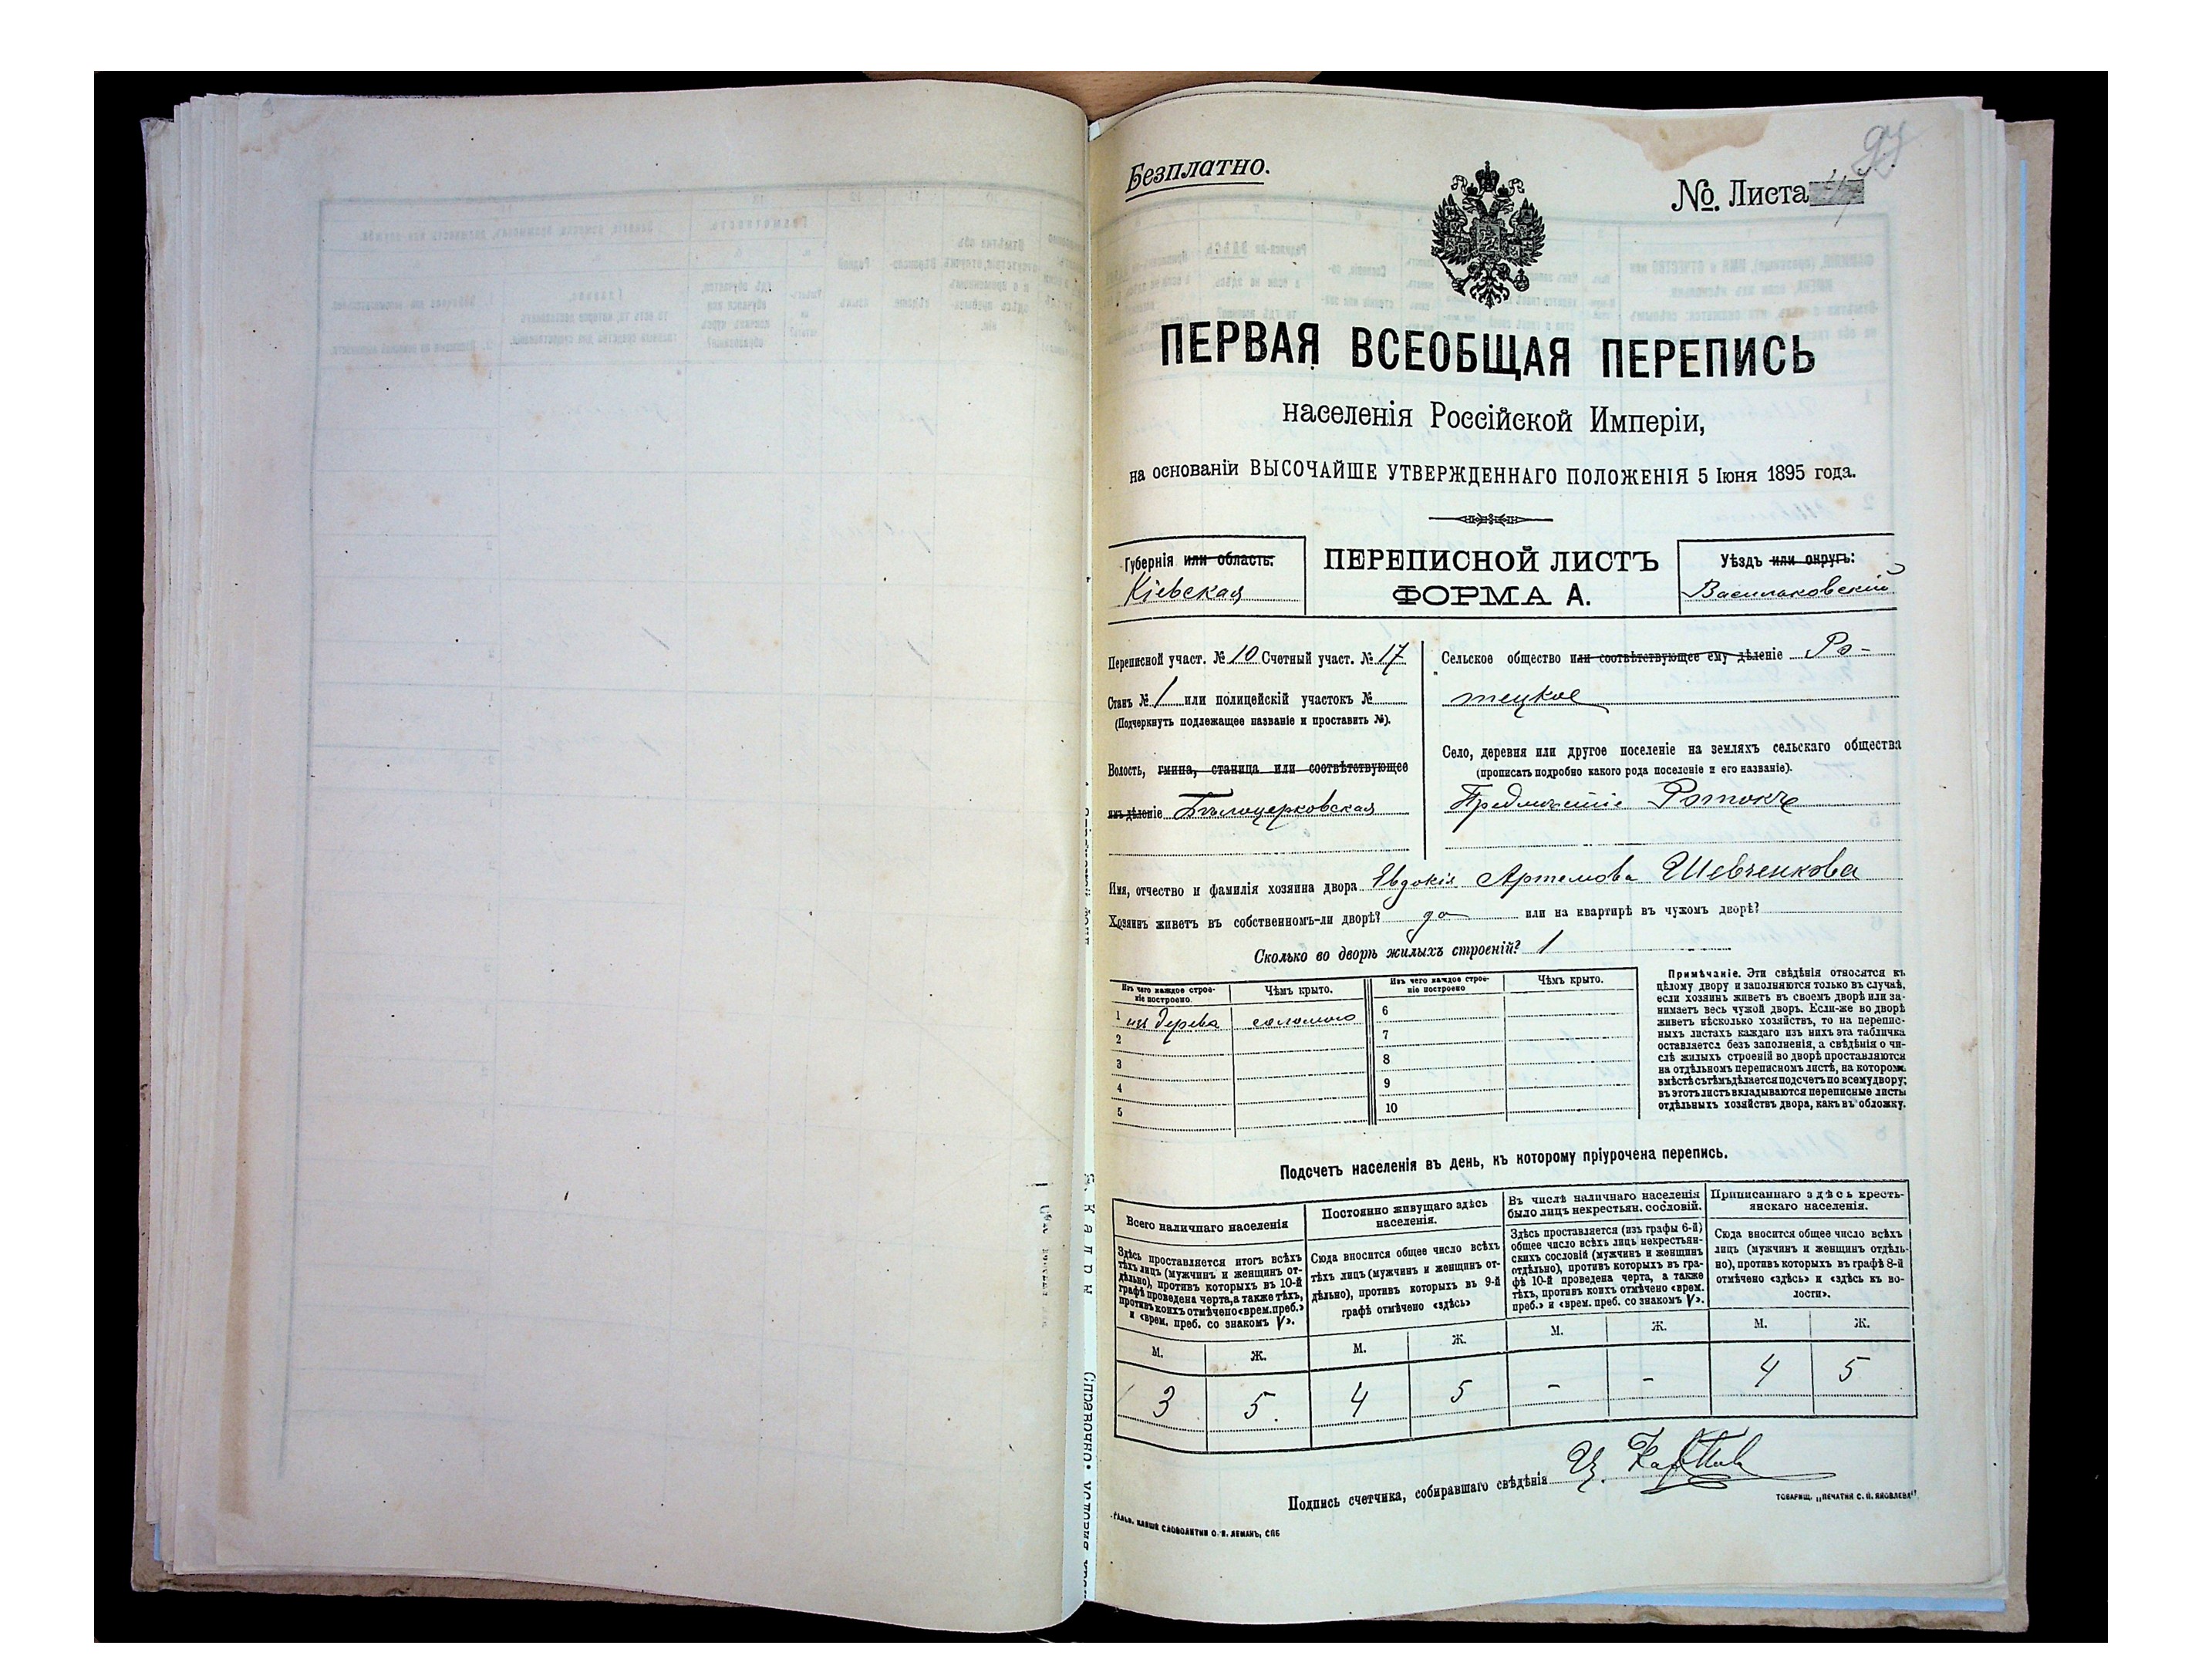 Безплатно.
97
№ Листа
ПЕРВАЯ ВСЕОБЩАЯ ПЕРЕПИСЬ
населенія Россійской Имперіи,
на основаніи ВЫСОЧАЙШЕ УТВЕРЖДЕННАГО ПОЛОЖЕНІЯ 5 Іюня 1895 года.
Губернія или область:
Кіевская
ПЕРЕПИСНОЙ ЛИСТЪ
ФОРМА А.
Уѣздъ или округъ:
Васильковскій
Переписной участ. № 10 Счетный участ. № 17
Станъ № 1 или полицейскій участокъ №
(Подчеркнуть подлежащее названіе и проставить №).
Волость, гмина, станица или соотвѣтствующее
имъ дѣленіе Бѣлоцерковская
Сельское общество или соотвѣтствующее ему дѣленіе Ро-
тецкое
Село, деревня или другое поселеніе на земляхъ сельскаго общества
(прописать подробно какого рода поселеніе и его названіе).
Предмѣстіе Ротокъ
Имя, отчество и фамилія хозяина двора Евдокія Артемова Шевченкова
Хозяинъ живетъ въ собственномъ-ли дворѣ? да или на квартирѣ въ чужомъ дворѣ?
Сколько во дворѣ жилыхъ строеній? 1
Изъ чего каждое строе-
ніе построено.
Чѣмъ крыто.
Изъ чего каждое строе-
ніе построено
Чѣмъ крыто.
1 изъ дерева соломою 6
2 7
3 8
4 9
5 10
Примѣчаніе. Эти свѣдѣнія относятся къ
цѣлому двору и заполняются только въ случаѣ,
если хозяинъ живетъ въ своемъ дворѣ или за-
нимаетъ весь чужой дворъ. Если-же во дворѣ
живетъ нѣсколько хозяйствъ, то на перепис-
ныхъ листахъ каждаго изъ нихъ эта табличка
оставляется безъ заполненія, а свѣдѣнія о чи-
слѣ жилыхъ строеній во дворѣ проставляются
на отдѣльномъ переписномъ листѣ, на которомъ
вмѣстѣ съ тѣмъ дѣлается подсчетъ по всему двору;
въ этотъ листъ вкладываются переписные листы
отдѣльныхъ хозяйствъ двора, какъ въ обложку.
Подсчетъ населенія въ день, къ которому пріурочена перепись.
Всего наличнаго населенія
Здѣсь проставляется итогъ всѣхъ
тѣхъ лицъ (мужчинъ и женщинъ от-
дѣльно), противъ которыхъ въ 10-й
графѣ проведена черта, а также тѣхъ,
противъ коихъ отмѣчено «врем. преб.»
и «врем. преб. со знакомъ V».
Постоянно живущаго здѣсь
населенія.
Сюда вносится общее число всѣхъ
тѣхъ лицъ (мужчинъ и женщинъ от-
дѣльно), противъ которыхъ въ 9-й
графѣ отмѣчено «здѣсь»
Въ числѣ наличнаго населенія
было лицъ некрестьян. сословій.
Здѣсь проставляется (изъ графы 6-й)
общее число всѣхъ лицъ некрестьян-
скихъ сословій (мужчинъ и женщинъ
отдѣльно), противъ которыхъ въ гра-
фѣ 10-й проведена черта, а также
тѣхъ, противъ коихъ отмѣчено «врем.
преб.» и «врем. преб. со знакомъ V».
Приписаннаго здѣсь кресть-
янскаго населенія.
Сюда вносится общее число всѣхъ
лицъ (мужчинъ и женщинъ отдѣль-
но), противъ которыхъ въ графѣ 8-й
отмѣчено «здѣсь» и «здѣсь къ во-
лости».
М. Ж. М. Ж. М. Ж. М. Ж.
3 5. 4 5 - - 4 5
Подпись счетчика, собиравшаго свѣдѣнія
ТОВАРИЩ. „ПЕЧАТНЯ С. П. ЯКОВЛЕВА"
СЛОВОЛИТНИ О. И. ЛЕМАНЪ, СПБ